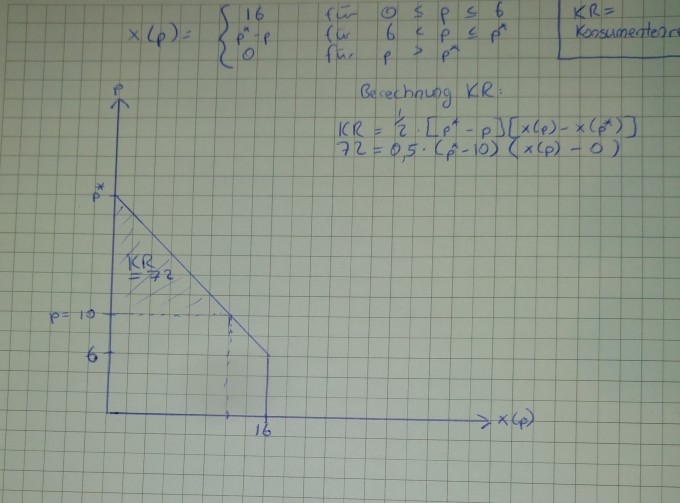 x(p) = { 16 für 0 ≤ p ≤ 6
p*-p für 6 < p ≤ p*
0 für p > p*
KR =
Konsumentenr
Berechnung KR:
KR = 1/2 · [p* - p][x(p) - x(p*)]
72 = 0,5 · (p* - 10) (x(p) - 0)
p
p*
KR
= 72
p = 10
6
16
x(p)